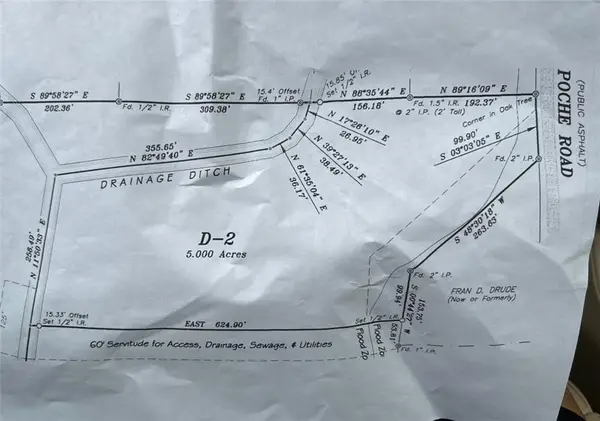 S 89°58'27" E
202.36'
Fd. 1/2" I.R.
S 89°58'27" E
309.38'
15.4' Offset
Fd. 1" I.P.
Set 1/2" I.R.
N 88°35'44" E
156.18'
Fd. 1.5" I.R.
N 89°16'09" E
192.37'
2" I.P. (2' Tall)
Corner in Oak Tree
POCHE ROAD
(PUBLIC ASPHALT)
99.90'
S 03°03'05" E
Fd. 2" I.P.
N 17°26'10" E
26.95'
N 39°27'13" E
38.49'
N 61°35'04" E
36.17'
355.65'
N 82°49'40" E
DRAINAGE DITCH
256.49'
N 11°50'33" E
D-2
5.000 Acres
S 48°30'18" W
263.63'
Fd. 2" I.P.
FRAN D. DRUDE
(Now or Formerly)
99.94'
153.75'
15.33' Offset
Set 1/2" I.R.
EAST 624.90'
Set 1/2" I.R.
53.81'
Fd. 1" I.P.
Flood Zo
Flood Zo
60' Servitude for Access, Drainage, Sewage, & Utilities
125'